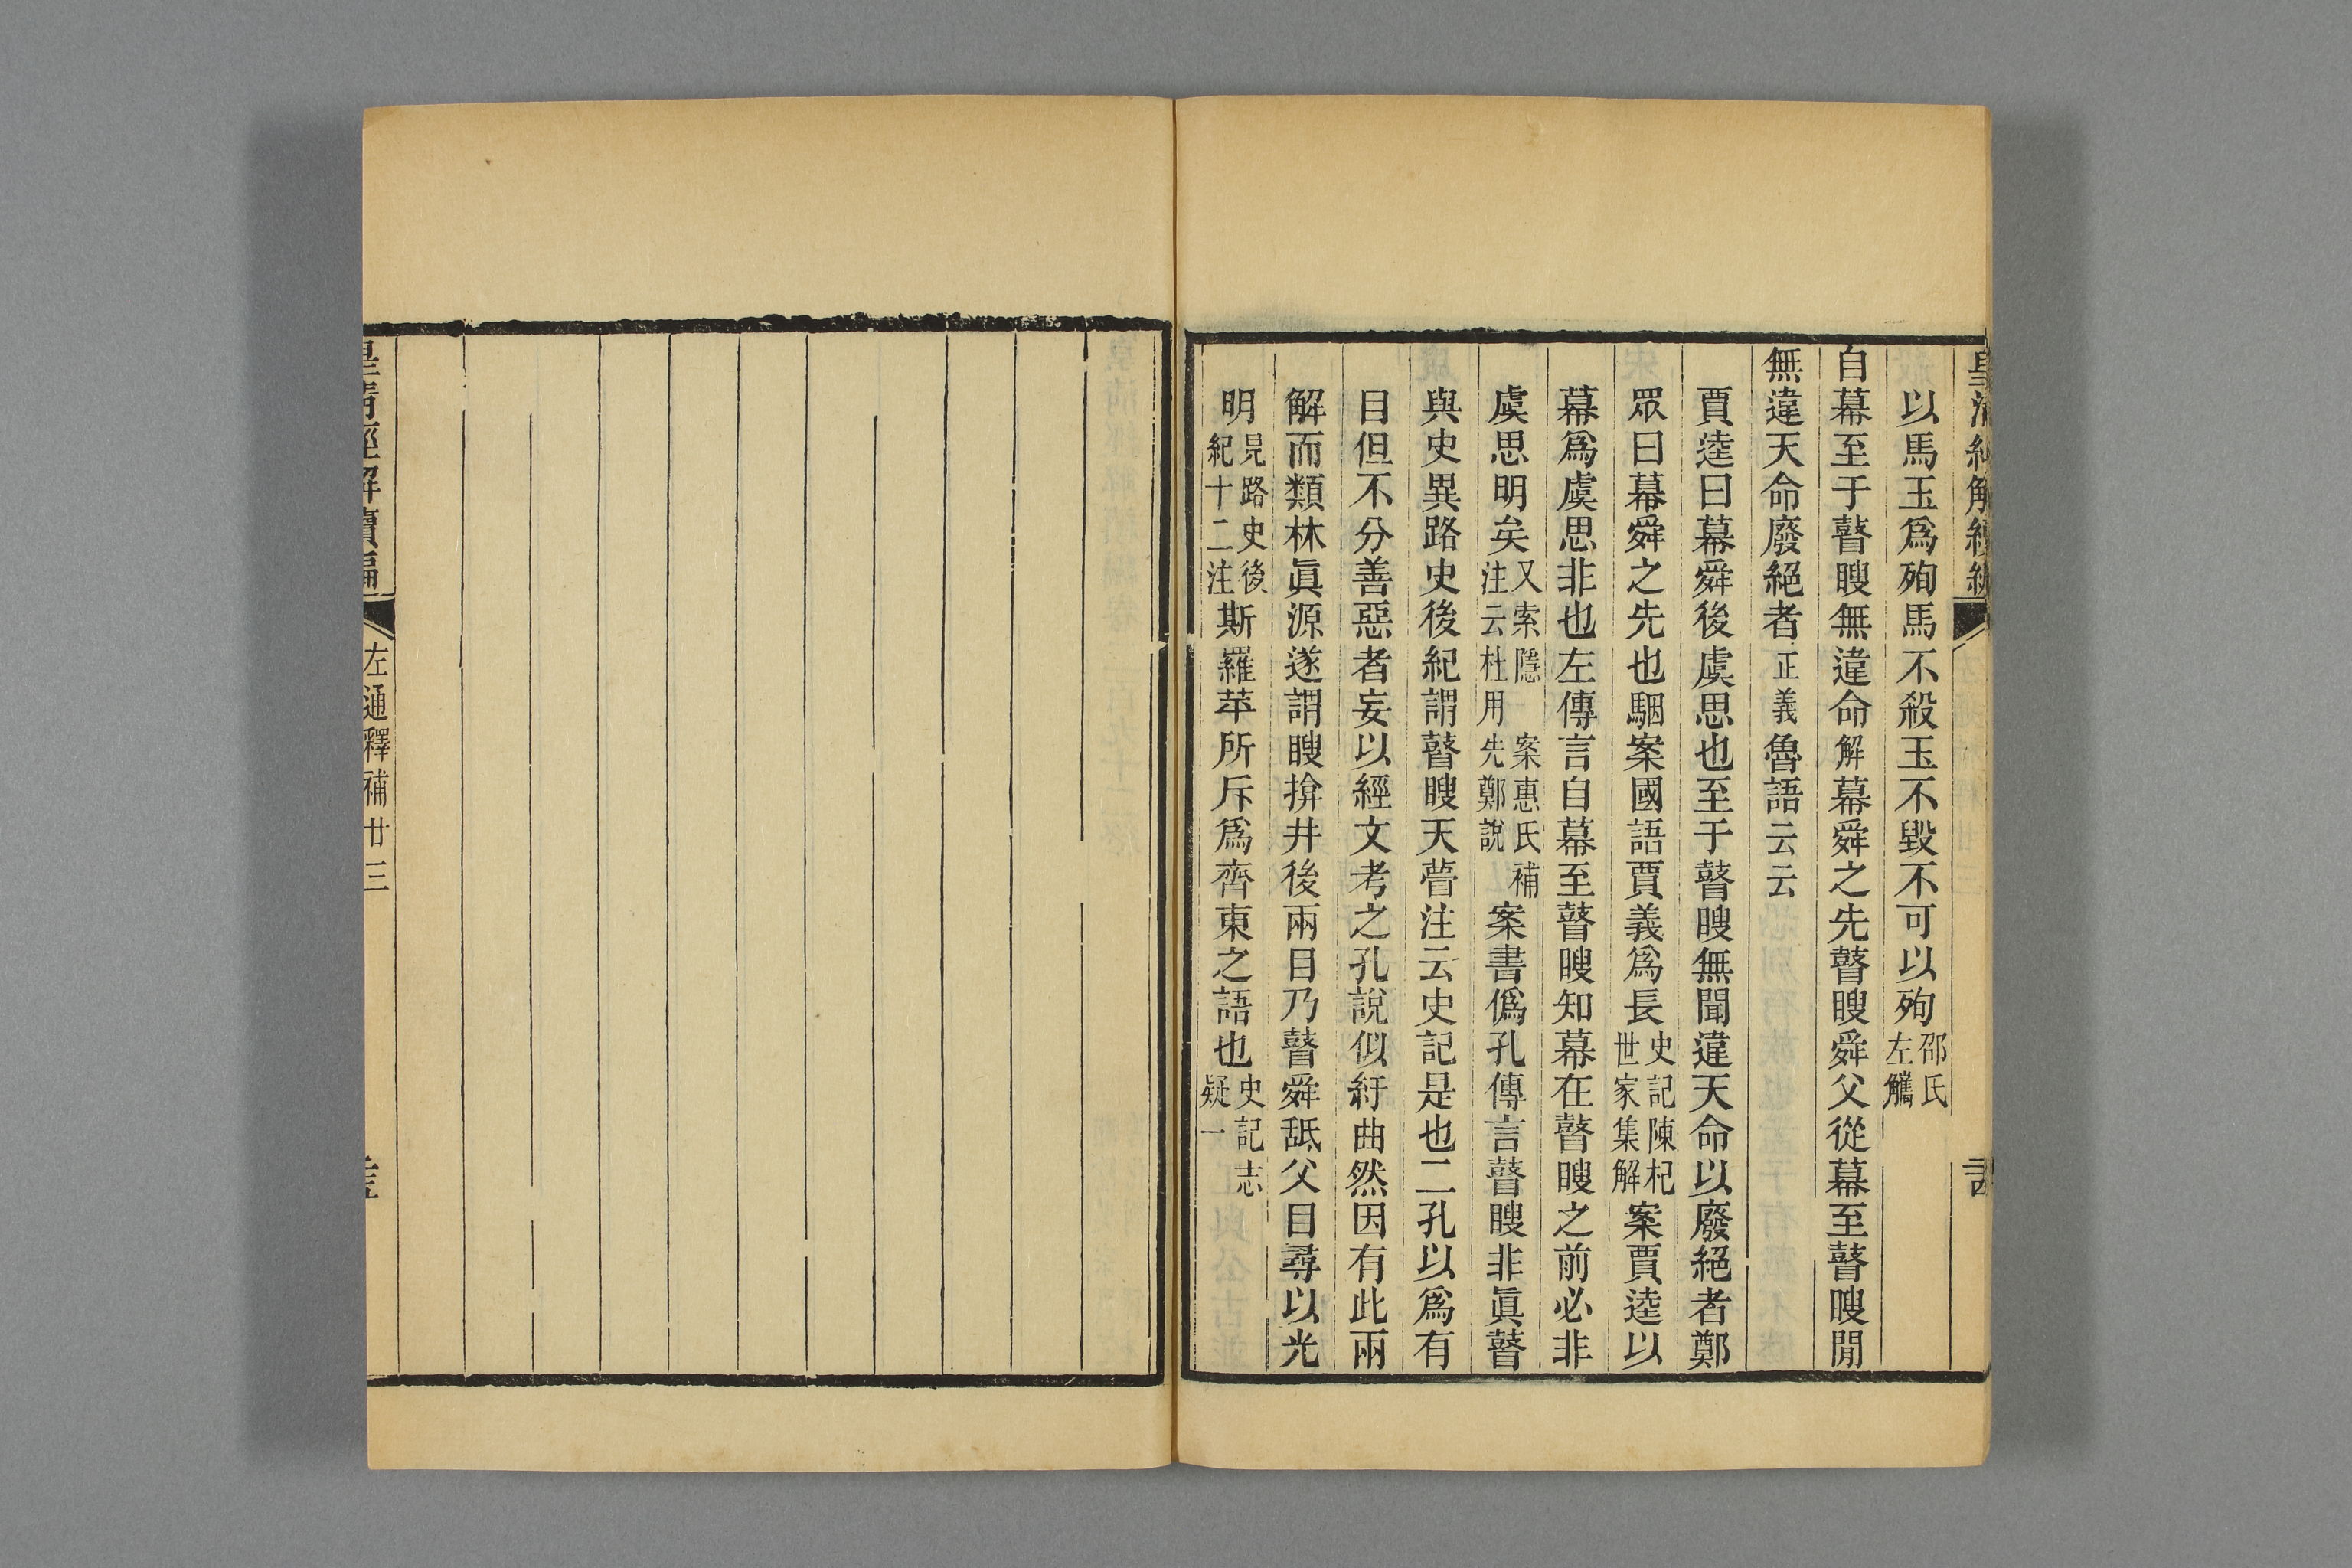 皇清經解續編
以馬玉爲殉馬不殺玉不毀不可以殉邵氏左觿
自幕至于瞽瞍無違命解幕舜之先瞽瞍舜父從幕至瞽瞍閒
無違天命廢絕者正義魯語云云
賈逵曰幕舜後虞思也至于瞽瞍無聞違天命以廢絕者鄭
眾曰幕舜之先也駰案國語賈義爲長史記陳杞世家集解案賈逵以
幕爲虞思非也左傳言自幕至瞽瞍知幕在瞽瞍之前必非
虞思明矣又索隱注云杜用案惠氏補先鄭說案書僞孔傳言瞽瞍非眞瞽
與史異路史後紀謂瞽瞍天瞢注云史記是也二孔以爲有
目但不分善惡者妄以經文考之孔說似紆曲然因有此兩
解而類林眞源遂謂瞍揜井後兩目乃瞽舜舐父目尋以光
明見路史後紀十二注斯羅苹所斥爲齊東之語也史記志疑一
皇清經解續編
左通釋補廿三